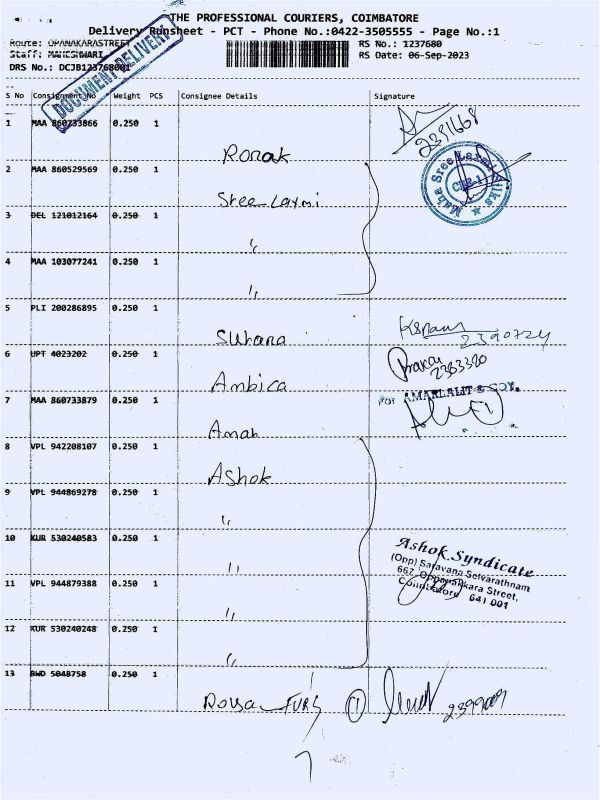 THE PROFESSIONAL COURIERS, COIMBATORE
Delivery Runsheet - PCT - Phone No.:0422-3505555 - Page No.:1
Route: OPANAKARASTREET
RS No.: 1237680
Staff: MAHESHWARI
RS Date: 06-Sep-2023
DRS No.: DCJB123768001
DOCUMENT DELIVERY
S No Consignment No Weight PCS Consignee Details Signature
1 MAA 860733866 0.250 1 Ronak 2391668
2 MAA 860529569 0.250 1 Sree Laxmi
Maha Sree Laxmi Silks
CBE-1
3 DEL 121012164 0.250 1 "
4 MAA 103077241 0.250 1 "
5 PLI 200286895 0.250 1 Suhana 2390724
6 UPT 4023202 0.250 1 Ambica 2383320
7 MAA 860733879 0.250 1 Aman
For AMARLALIT & COY.
8 VPL 942208107 0.250 1 Ashok
9 VPL 944869278 0.250 1 "
10 KUR 530240583 0.250 1 "
Ashok Syndicate
(Opp) Saravana Selvarathnam
667, Oppanakkara Street,
Coimbatore 641 001
11 VPL 944879388 0.250 1 "
12 KUR 530240248 0.250 1 "
13 BWD 5048758 0.250 1 FURS 1